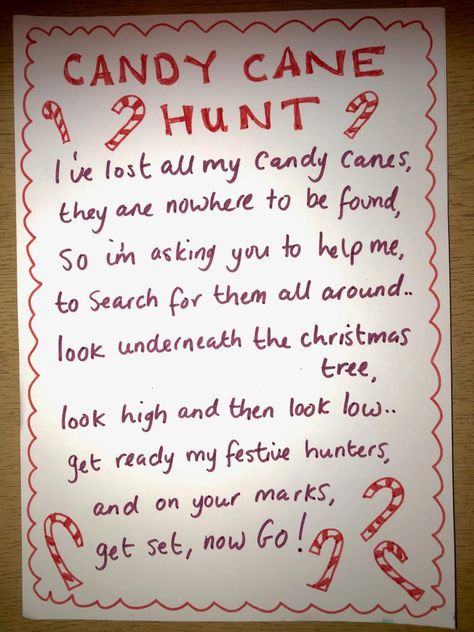 CANDY CANE
HUNT
I've lost all my Candy Canes,
they are nowhere to be found,
So i'm asking you to help me,
to Search for them all around..
look underneath the christmas
tree,
look high and then look low..
get ready my festive hunters,
and on your marks,
get set, now Go!